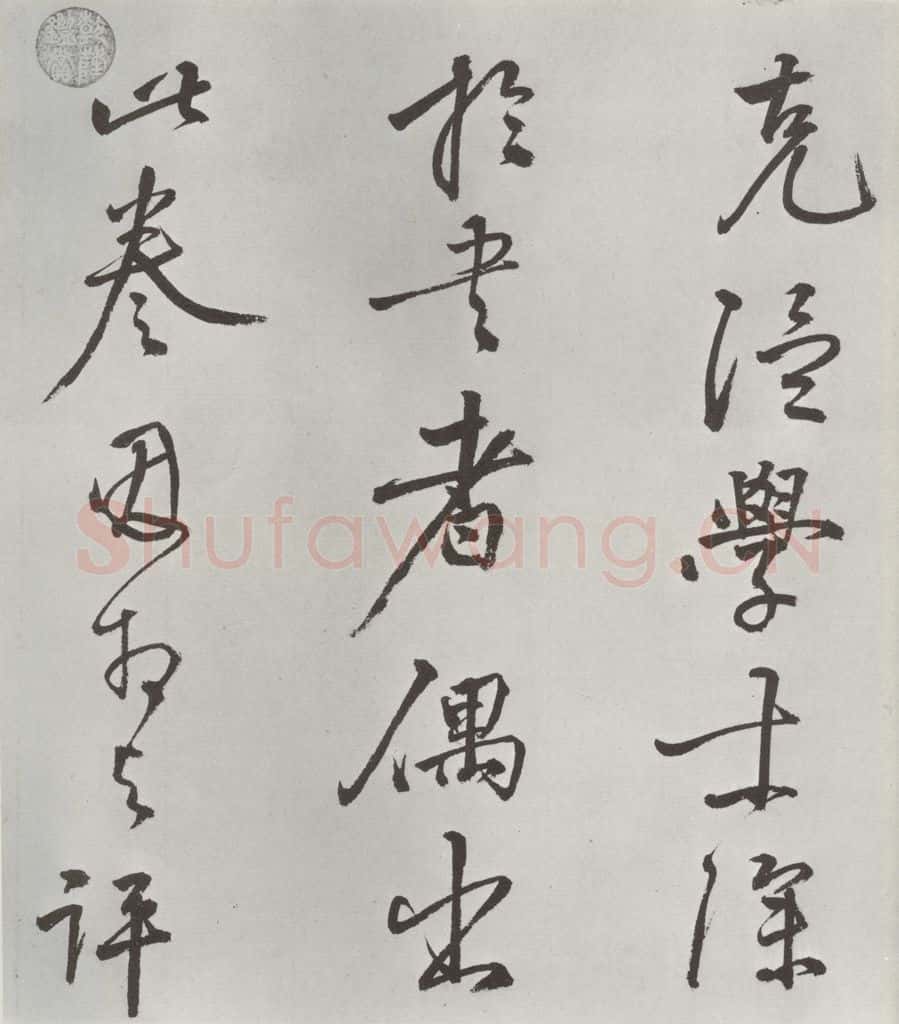 克温學士深
於書者偶出
此卷因相与評
Shufawang.CN